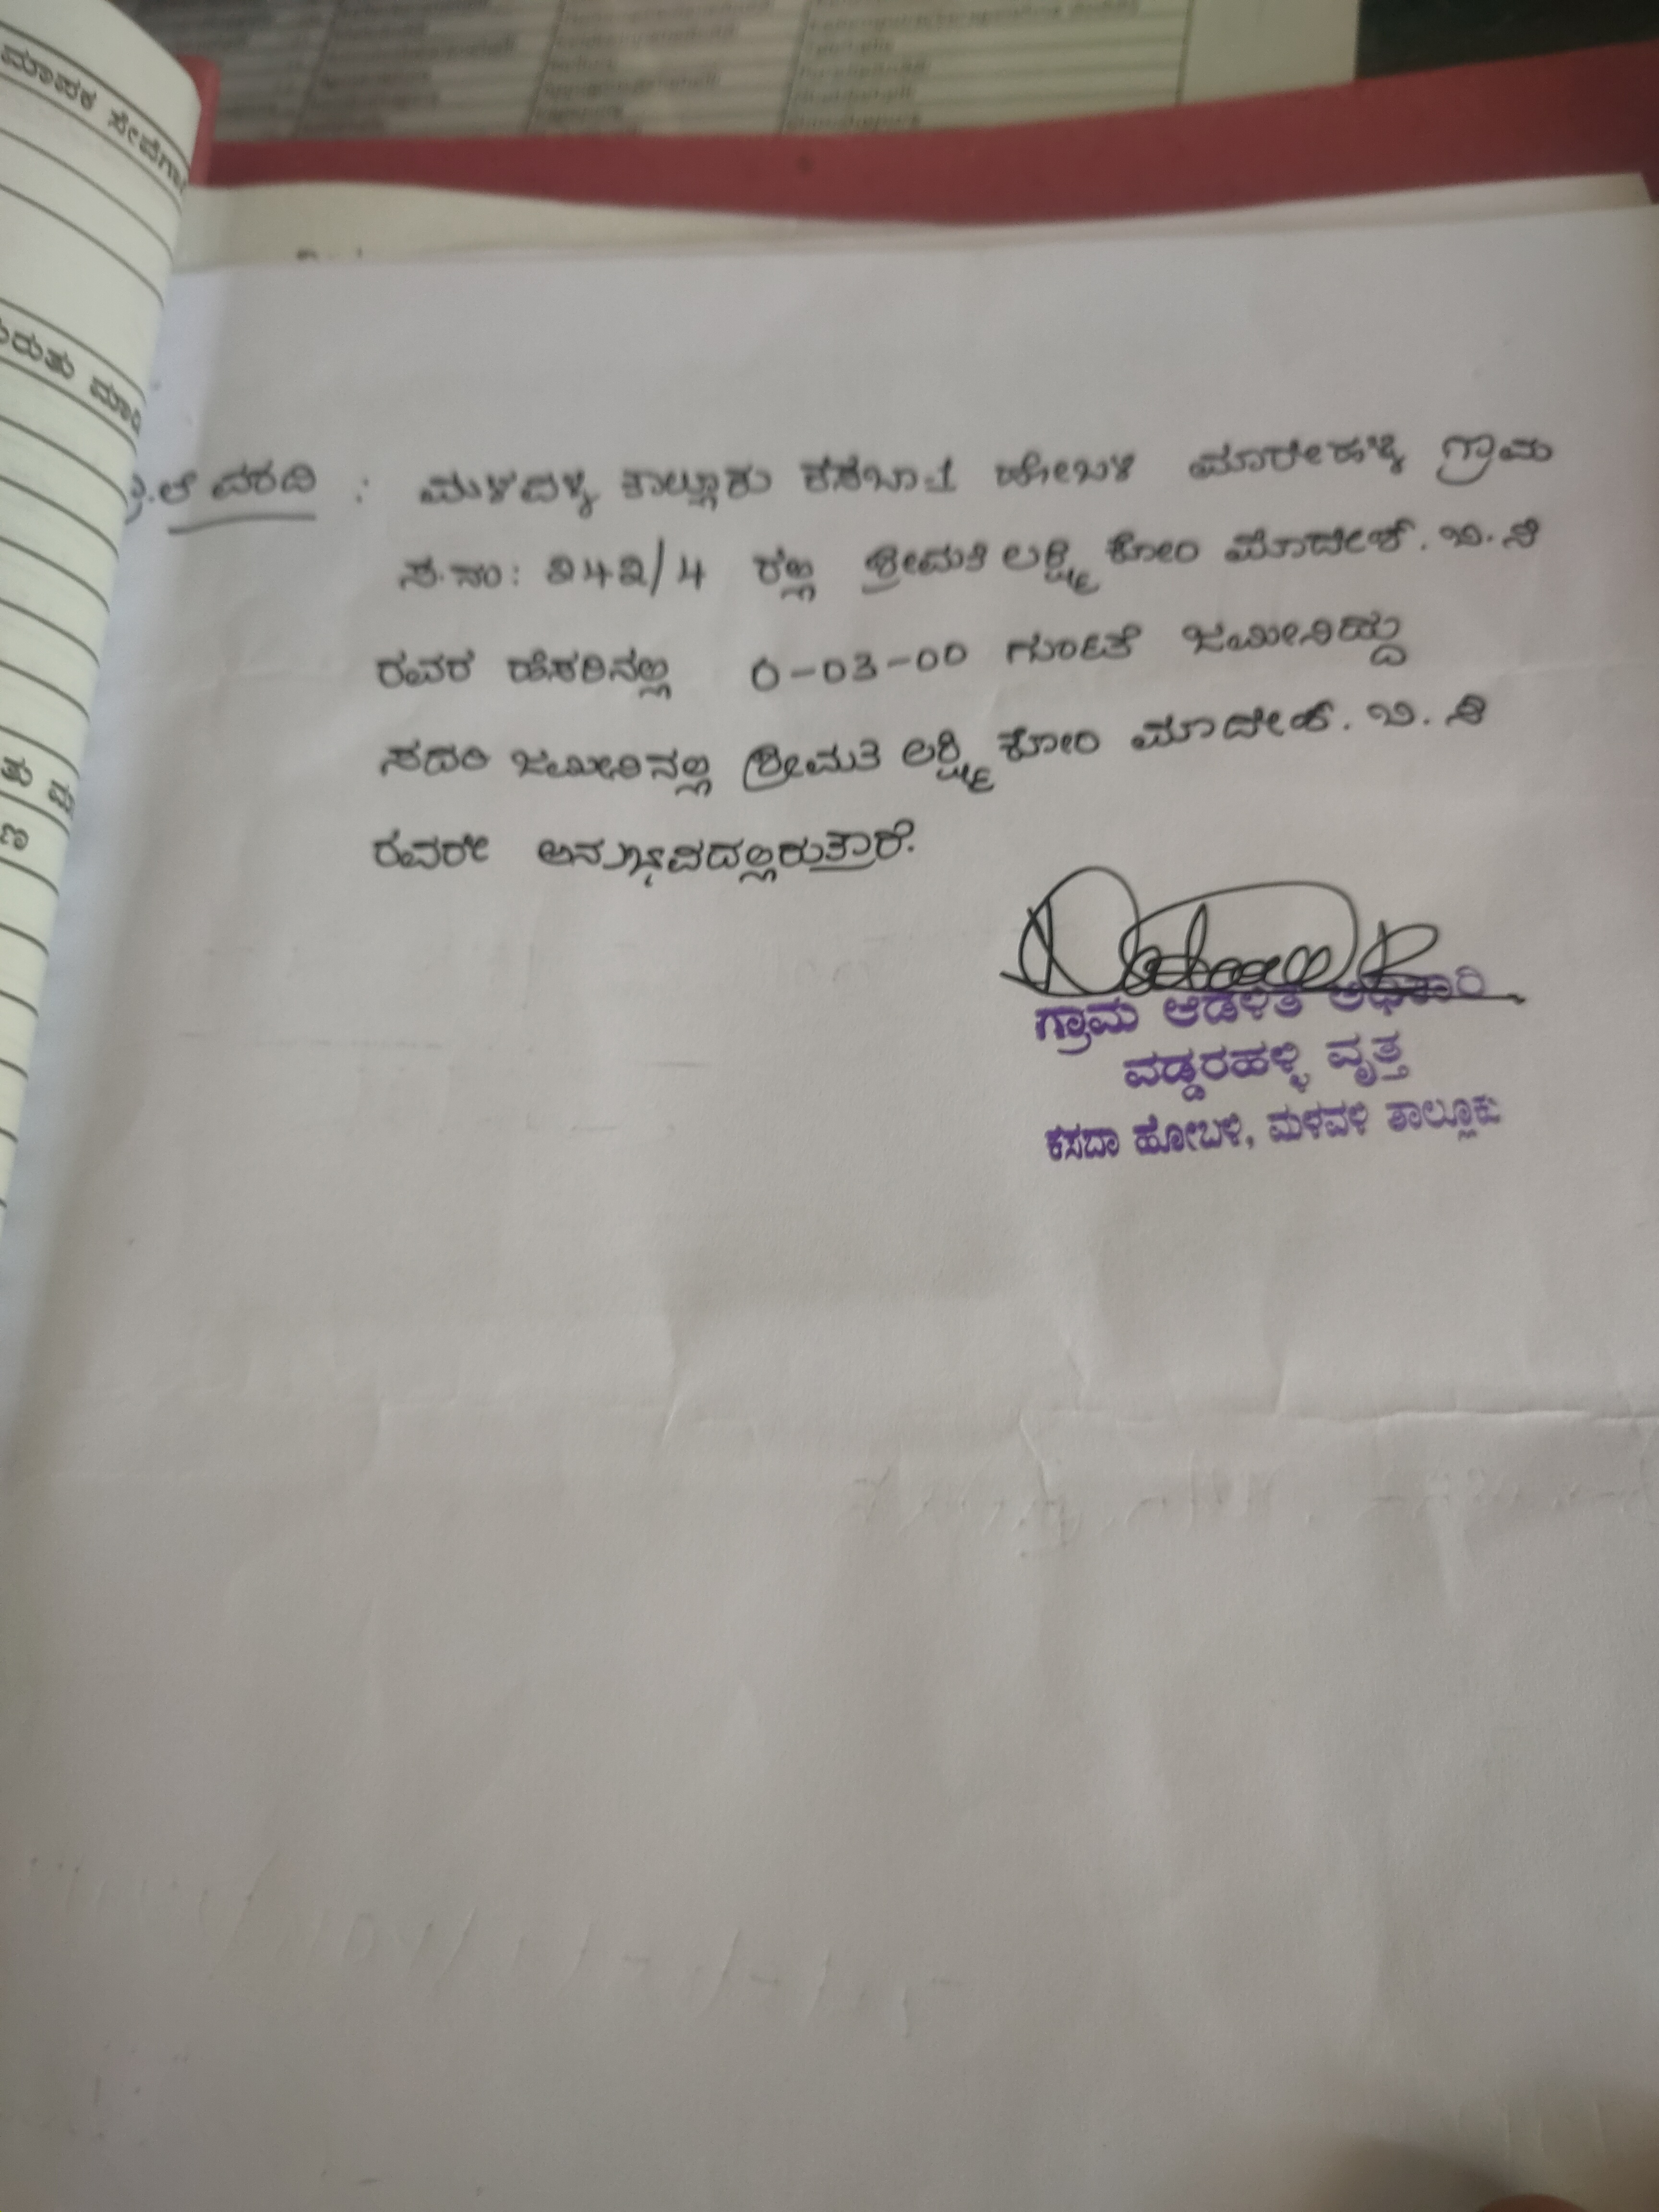 ಮಾಪಕ ಸೇವೆಗಾಗಿ
ಗ್ರಾ.ಲೆ ವರದಿ : ಮಳವಳ್ಳಿ ತಾಲ್ಲೂಕು ಕಸಬಾ-1 ಹೋಬಳಿ ಮಾರೇಹಳ್ಳಿ ಗ್ರಾಮ
ಸ.ನಂ: 242/4 ರಲ್ಲಿ ಶ್ರೀಮತಿ ಲಕ್ಷ್ಮಿ ಕೋಂ ಮಾದೇಶ್. ಬಿ. ಸಿ
ರವರ ಹೆಸರಿನಲ್ಲಿ 0-03-00 ಗುಂಟೆ ಜಮೀನಿದ್ದು
ಸದರಿ ಜಮೀನಿನಲ್ಲಿ ಶ್ರೀಮತಿ ಲಕ್ಷ್ಮಿ ಕೋಂ ಮಾದೇಶ. ಬಿ. ಸಿ
ರವರೇ ಅನುಭವದಲ್ಲಿರುತ್ತಾರೆ.
ಗ್ರಾಮ ಆಡಳಿತ ಅಧಿಕಾರಿ
ವಡ್ಡರಹಳ್ಳಿ ವೃತ್ತ
ಕಸಬಾ ಹೋಬಳಿ, ಮಳವಳ್ಳಿ ತಾಲ್ಲೂಕು